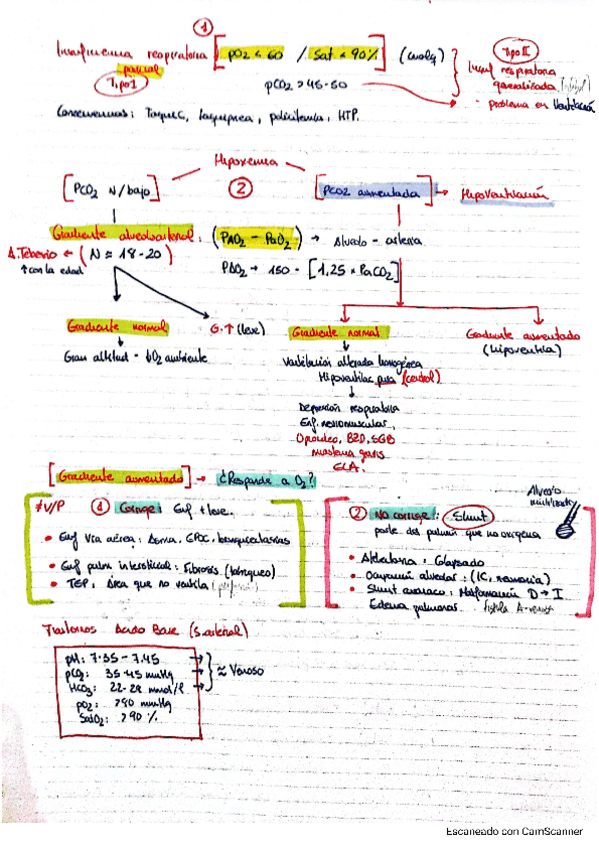 ①
Insuficiencia respiratoria [ pO2 < 60 / Sat < 90% ] Tipo II
parcial
Tipo I
pCO2 > 45-50
Insuf respiratoria
generalizada
- problema en ventilación
Consecuencias: Taquic, taquipnea, policitemia, HTP.
Hipoxemia
②
[PCO2 N/bajo]
[PCO2 aumentada] → Hipoventilación
Gradiente alveoloarterial: (PAO2 - PaO2) → Alveolo - arteria
(N ≈ 18-20)
↑ con la edad
PAO2 → 150 - [1,25 × PaCO2]
Gradiente normal
G. ↑ (leve)
Gradiente normal
Gradiente aumentado
Gran altitud - ↓O2 ambiente
Ventilación alterada homogénea
Hipoventilac pura (central)
Depresión respiratoria
Enf. neuromuscular,
Opioides, BZD, SGB
miastenia gravis
ELA.
[Gradiente aumentado] → ¿Responde a O2?
≠ V/P ① Corrige: Enf + leve.
② No corrige: Shunt
Alveolo
parte del pulmón que no oxigena
• Enf vía aérea: Asma, EPOC, bronquiectasias
• Enf pulm intersticial: Fibrosis (bloqueo)
• TEP: Área que no ventila
• Atelectasia: Colapsado
• Ocupación alveolar: (IC, neumonía)
• Shunt cardiaco: Malformación D → I
Edema pulmonar.
Trastornos Acido Base (S. arterial)
pH: 7.35 - 7.45 →
pCO2: 35-45 mmHg → ≈ Venoso
HCO3: 22-28 mmol/l →
pO2: >80 mmHg
SatO2: >90 %
Escaneado con CamScanner